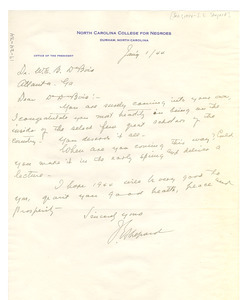 NORTH CAROLINA COLLEGE FOR NEGROES
DURHAM, NORTH CAROLINA
OFFICE OF THE PRESIDENT
Jan'y 1/44
Dr. W. E. B. Du Bois
Atlanta, Ga
Dear Dr Du Bois:-
You are surely coming into your own,
I congratulate you most heartily on being in
circle of the select few great scholars of the
country. You deserve it all.
When are you coming this way? Could
you make it in the early spring and deliver a
lecture.
I hope 1944 will be very good to
you, grant you good health, peace and
prosperity.
Sincerely yours
J E Shepard